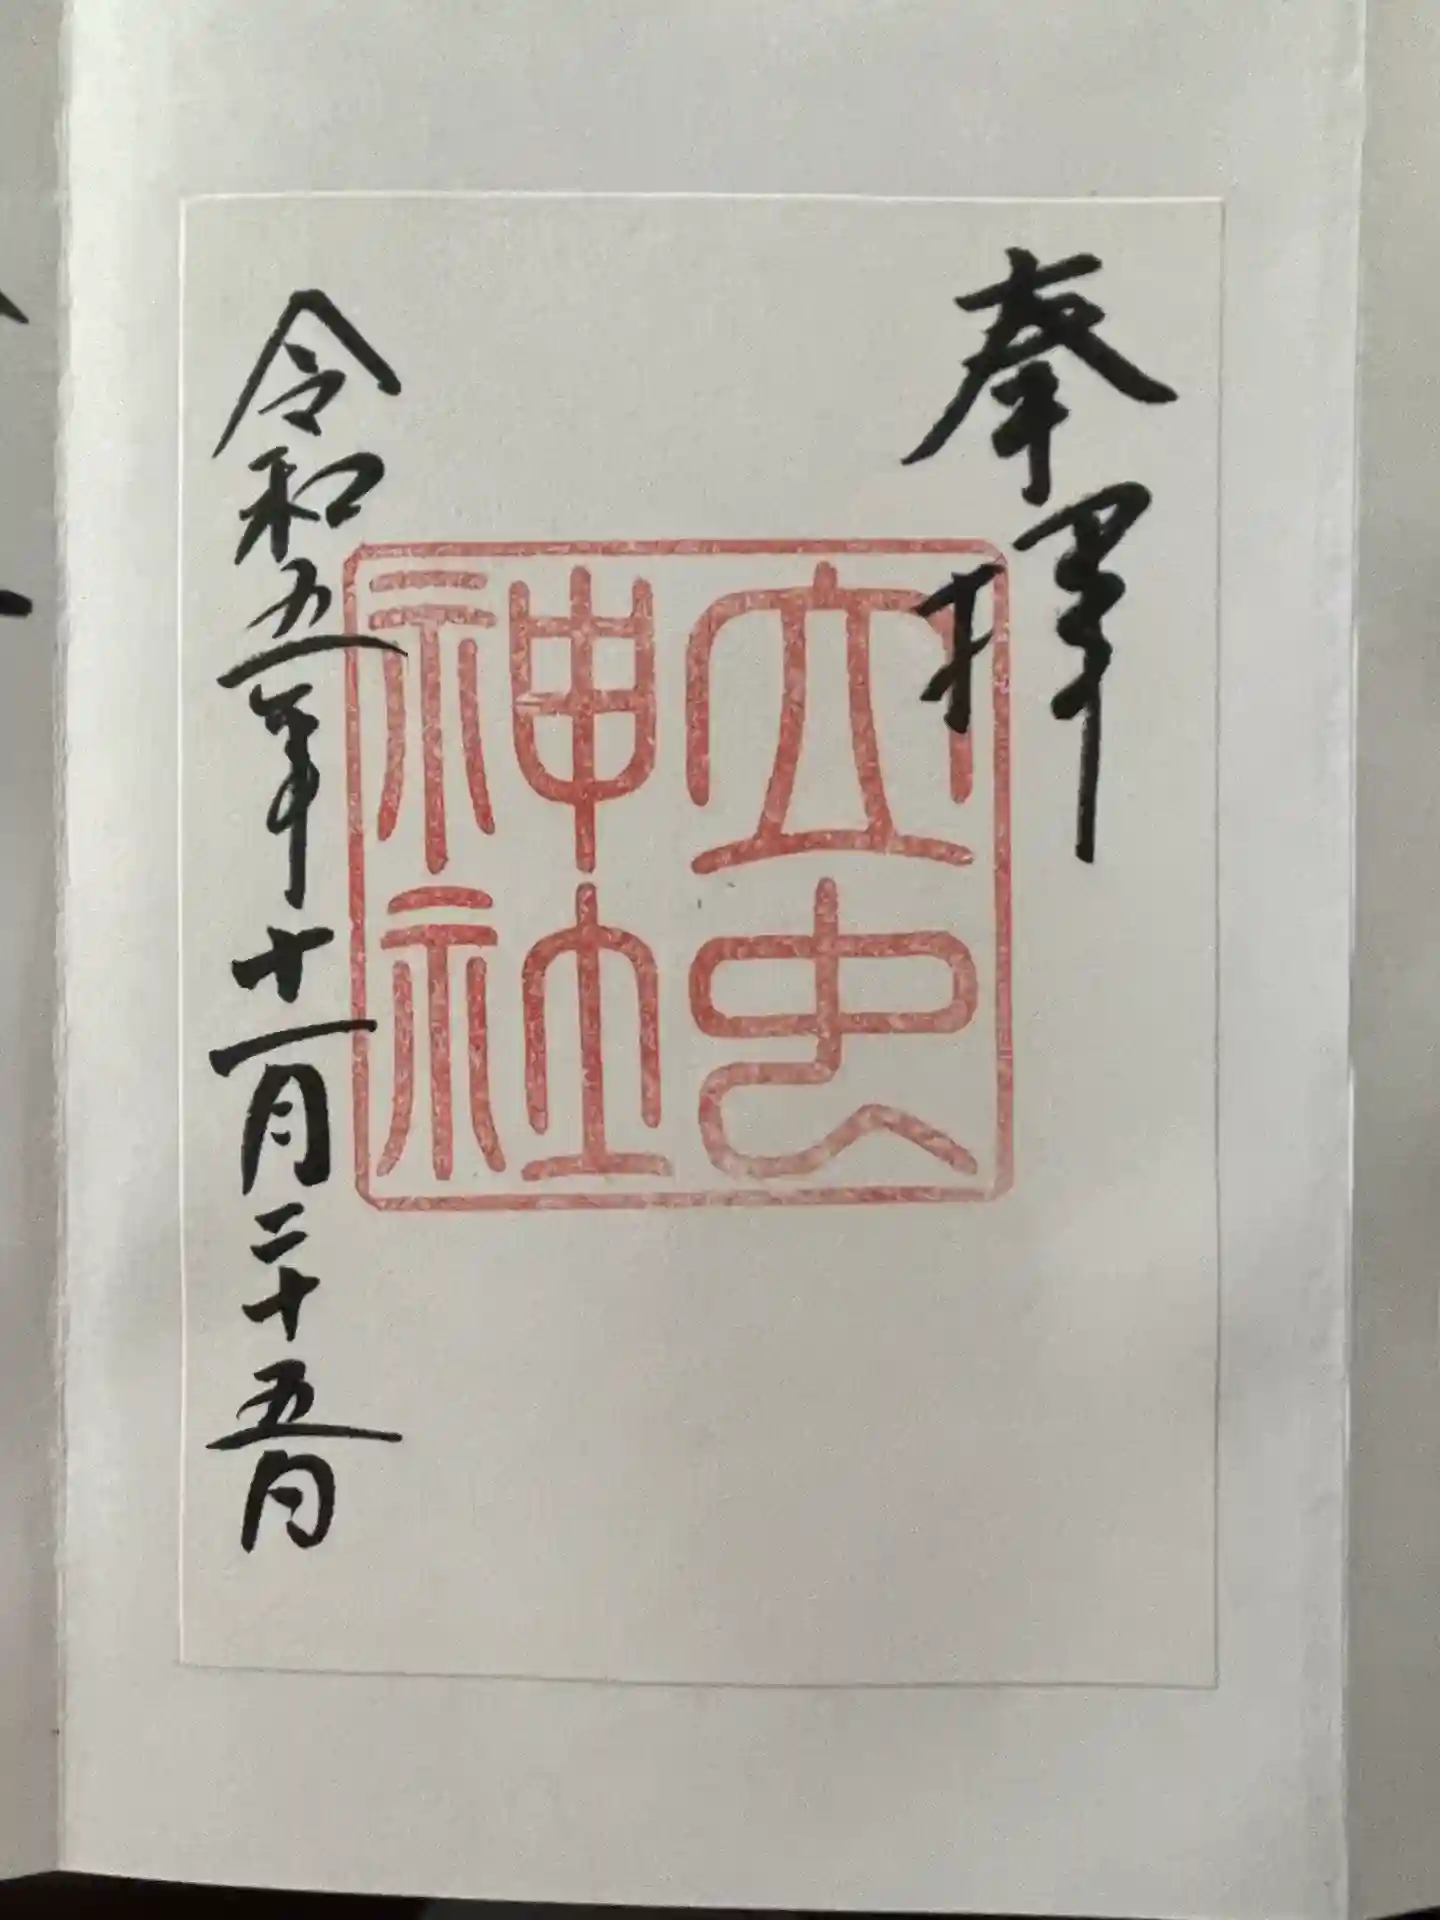 奉拝
立虫
神社
令和五年十一月二十五日